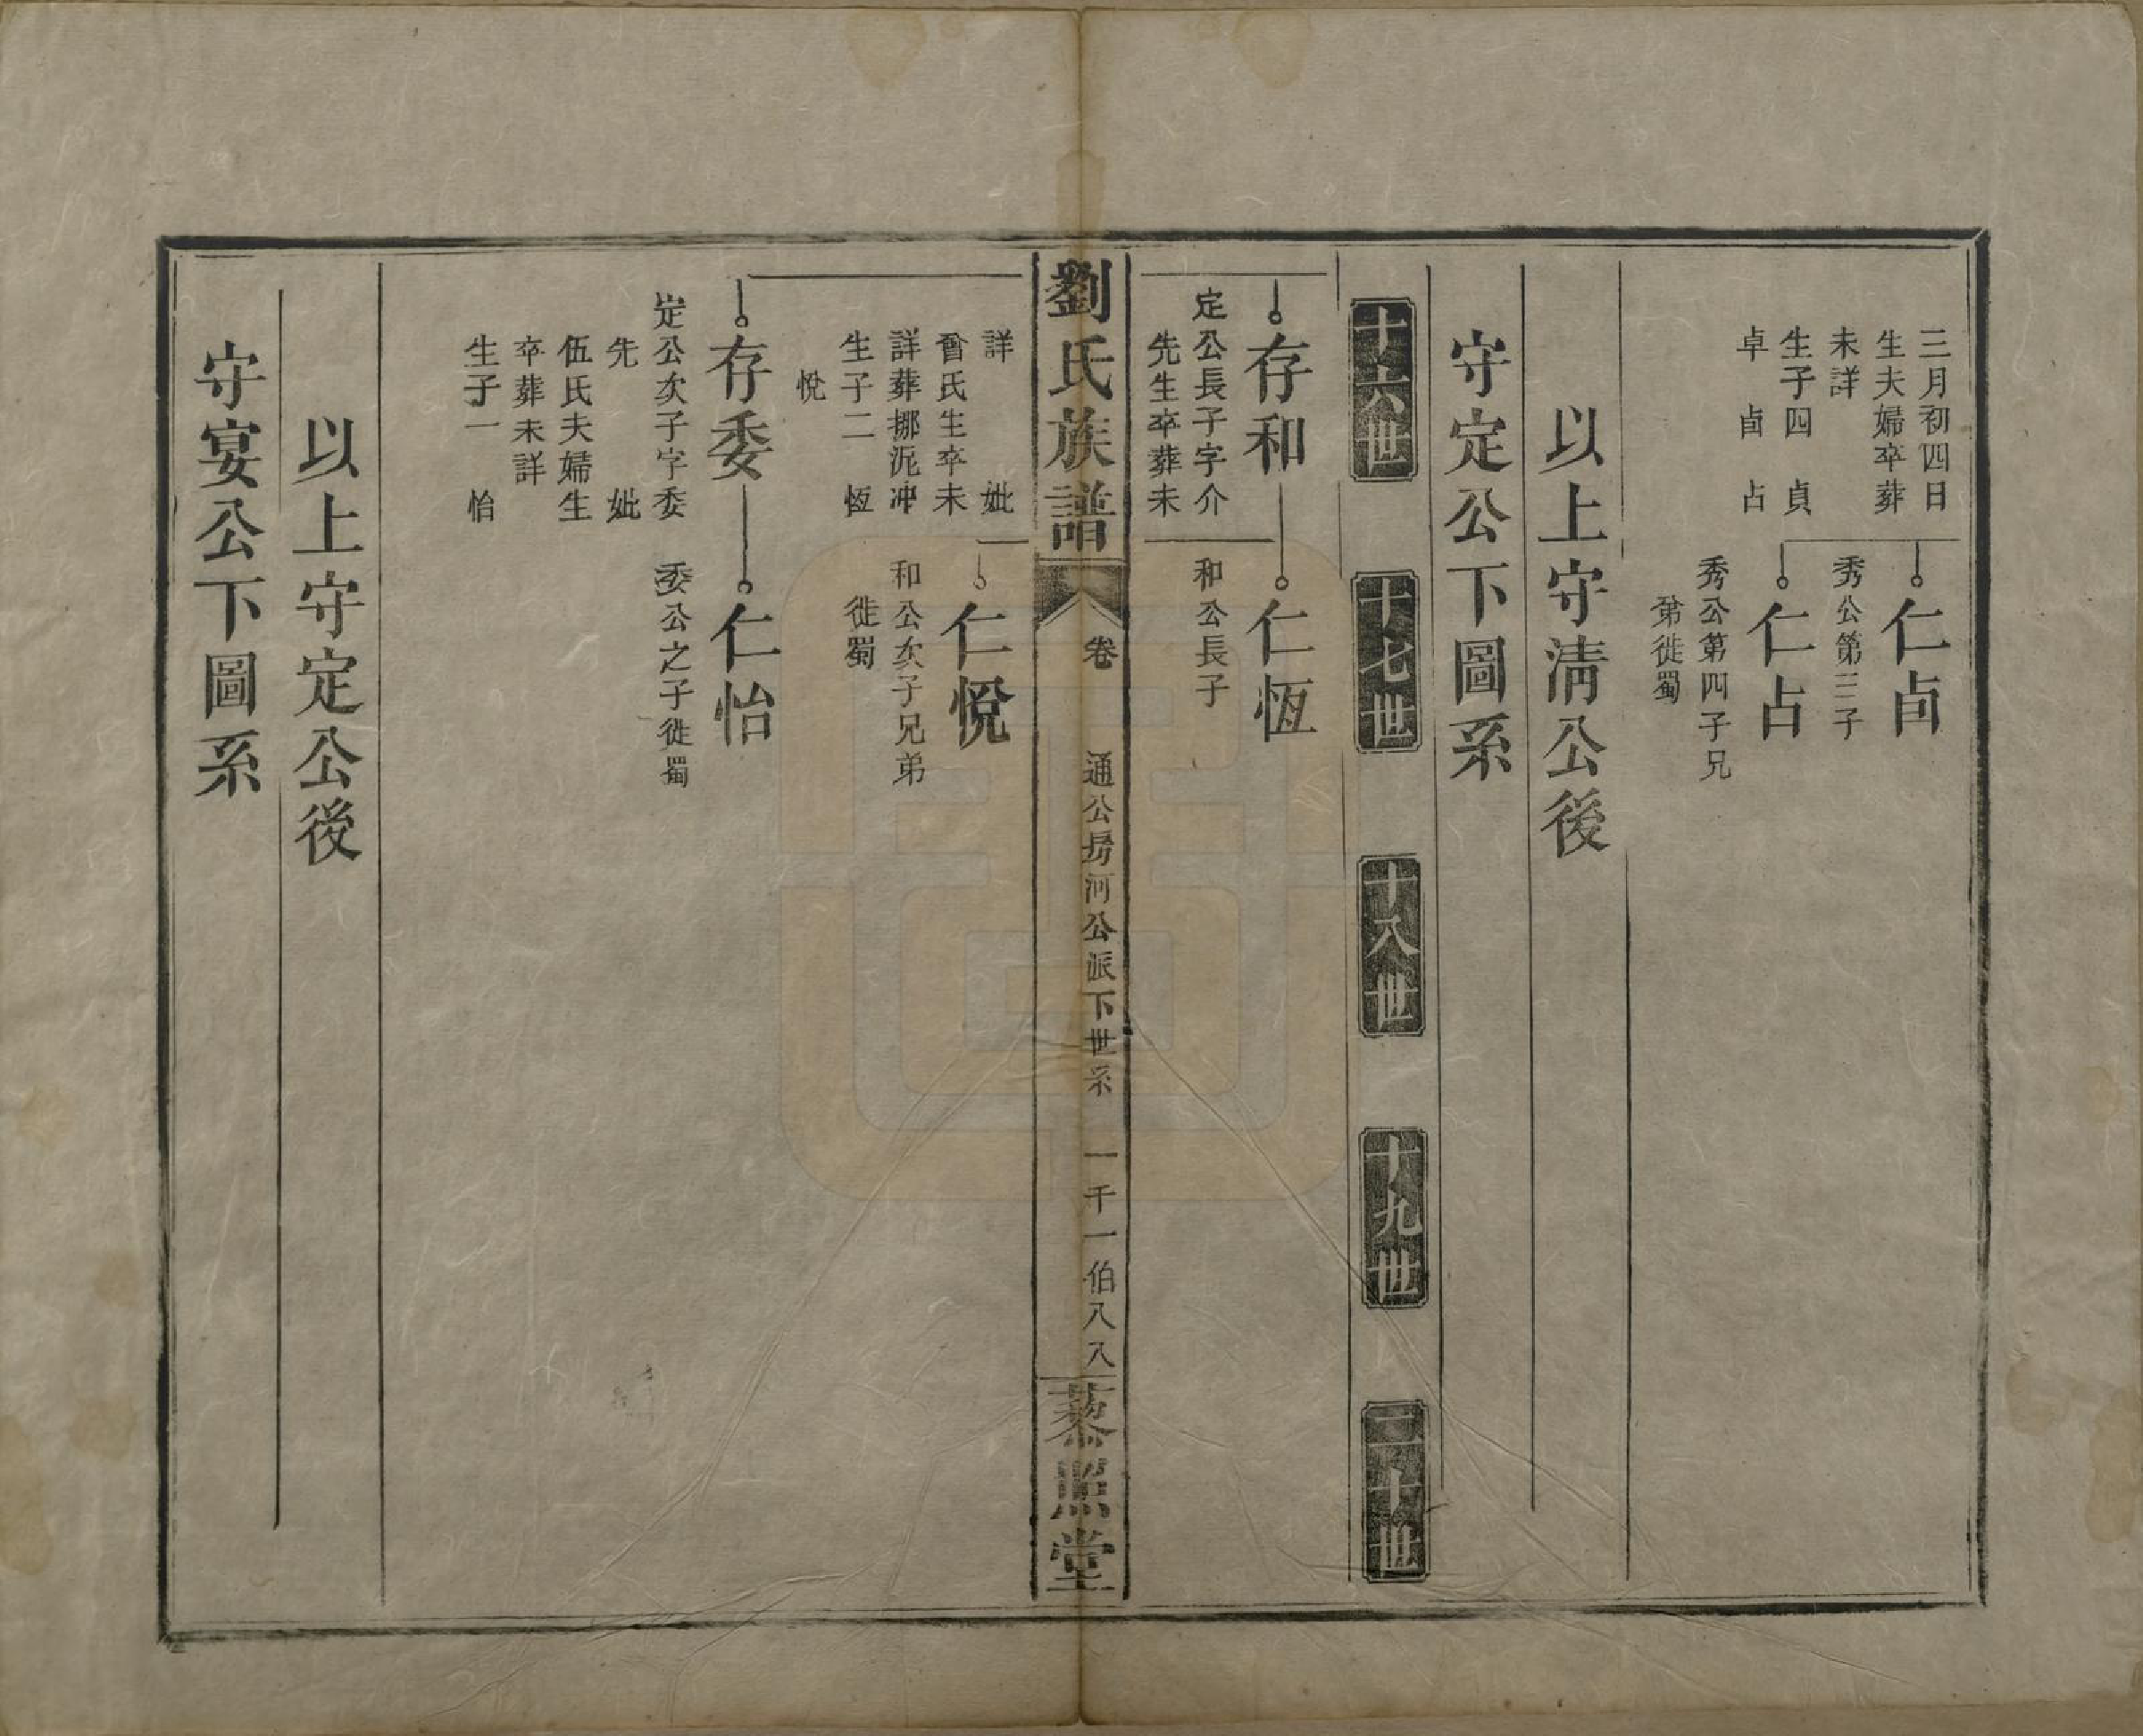 三月初四日
生夫婦卒葬
未詳
生子四　貞
卓　卣　占
仁卣
秀公第三子
仁占
秀公第四子兄
弟徙蜀
以上守淸公後
守定公下圖系
十六世
十七世
十八世
十九世
二十世
存和
定公長子字介
先生卒葬未
仁恆
和公長子
劉氏族譜
卷
通公房河公派下世系
一千一伯八八
藜照堂
詳　妣
曾氏生卒未
詳葬挪泥冲
生子二　恆
悅
仁悅
和公次子兄弟
徙蜀
存委
定公次子字委
先　妣
伍氏夫婦生
卒葬未詳
生子一　怡
仁怡
委公之子徙蜀
以上守定公後
守宴公下圖系